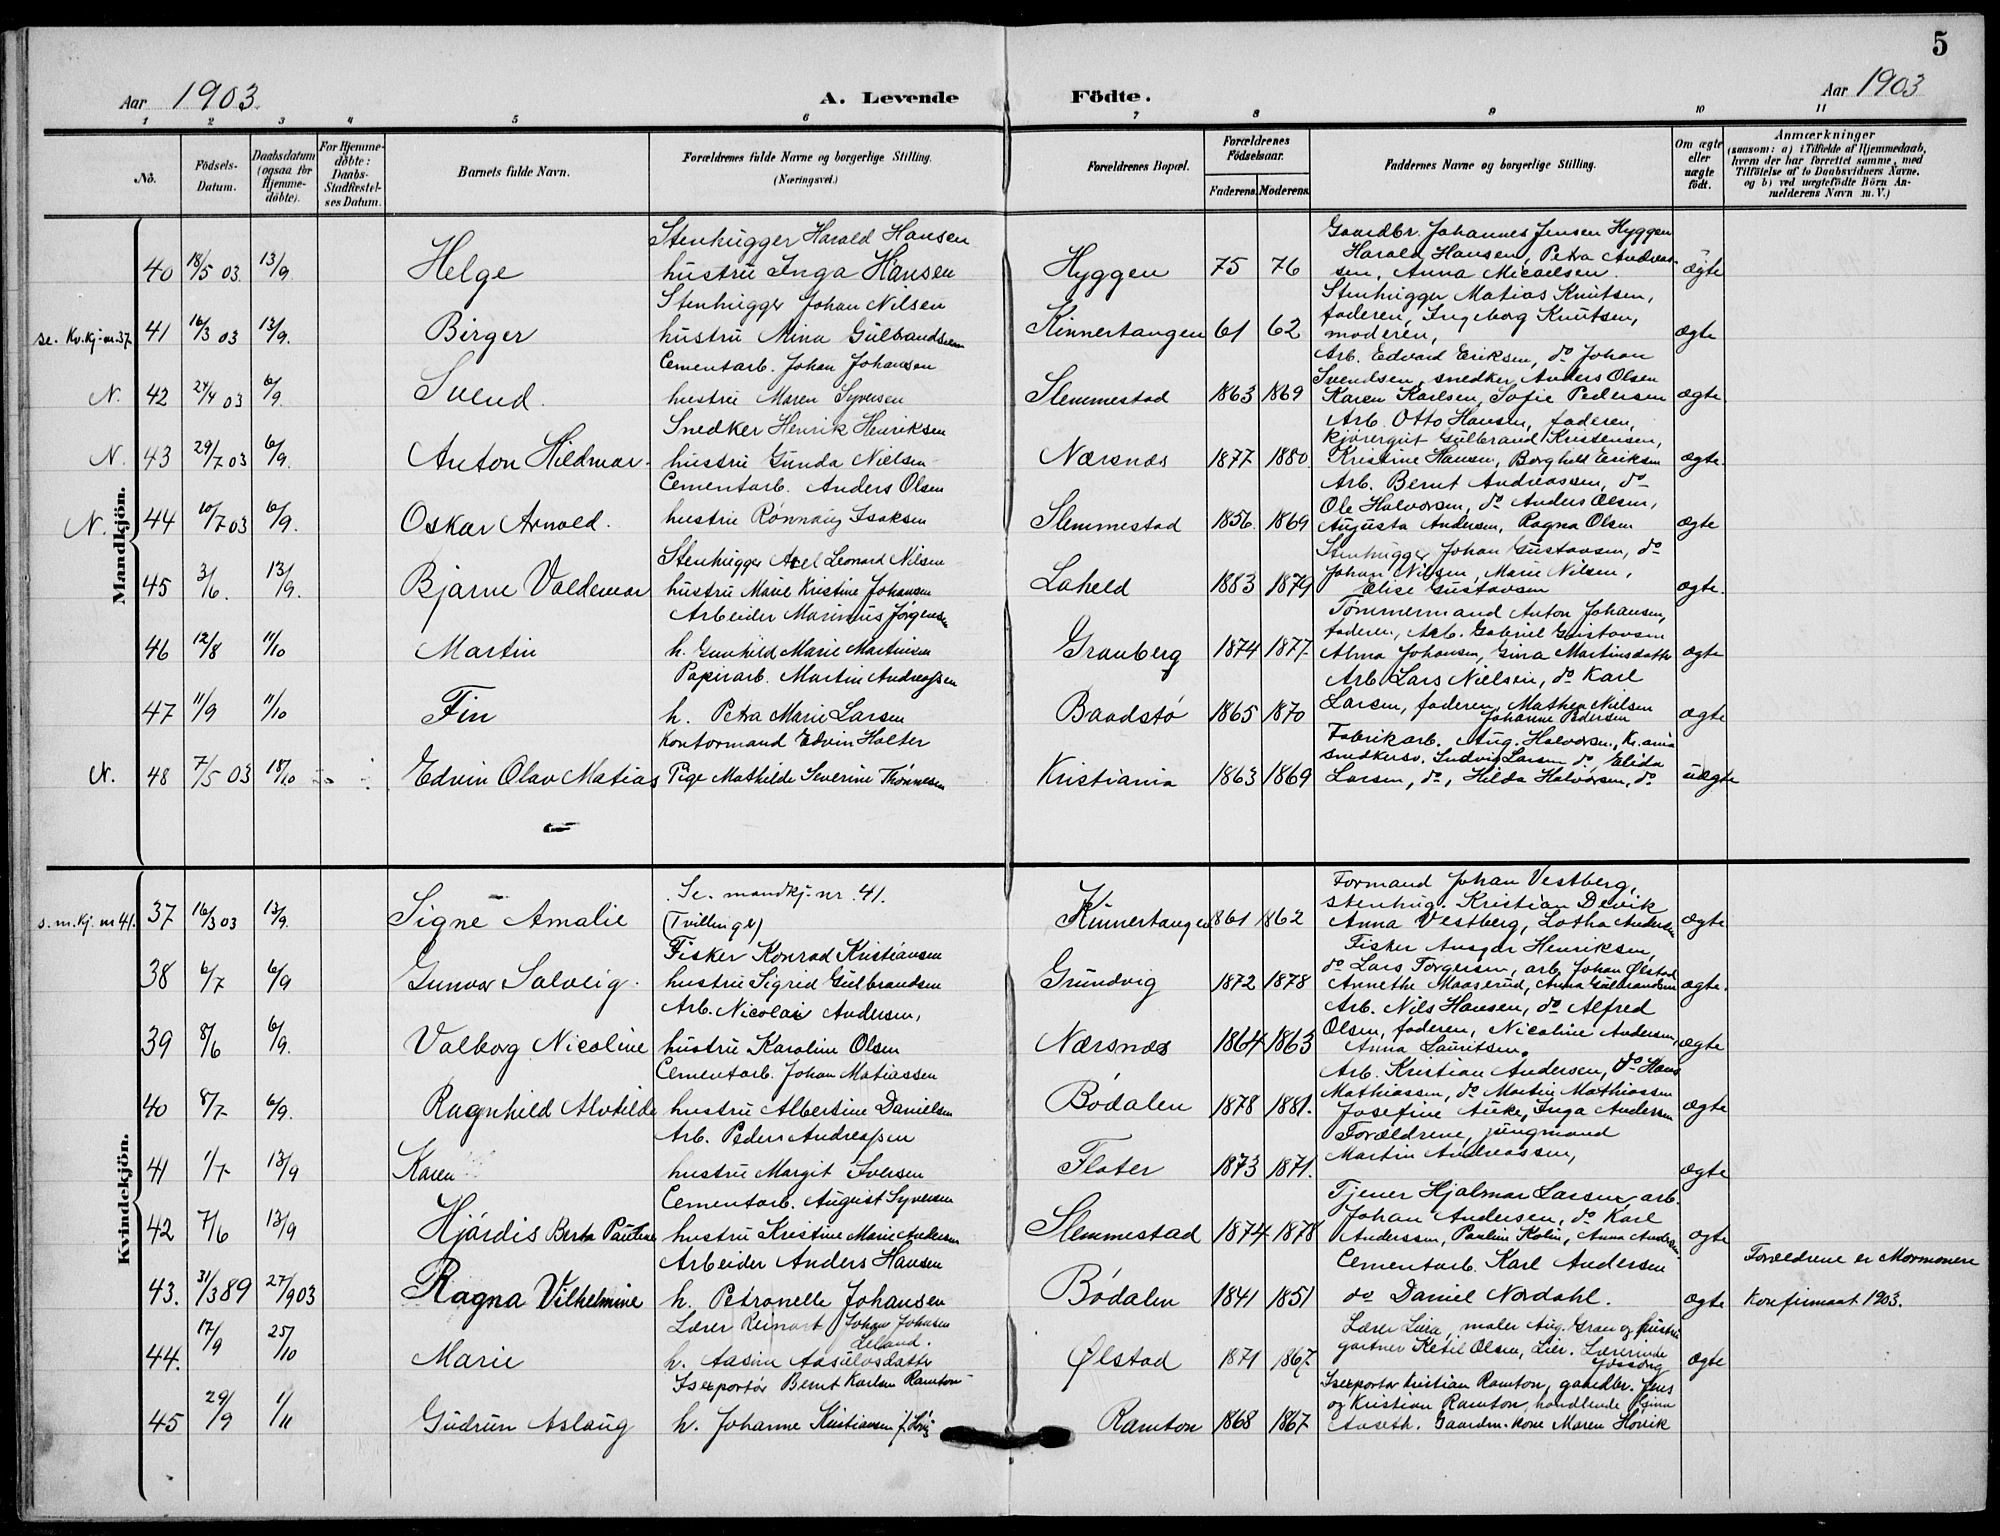 5
Aar 1903.
A. Levende Födte.
Aar 1903
1 2 3 4 5 6 7 8 9 10 11
No.
Födsels-Datum.
Daabsdatum (ogsaa for Hjemme-döbte).
For Hjemme-döbte: Daabs-Stadfæstel-ses Datum.
Barnets fulde Navn.
Forældrenes fulde Navne og borgerlige Stilling. (Næringsvei.)
Forældrenes Bopæl.
Forældrenes Födselsaar.
Faderens. Moderens.
Faddernes Navne og borgerlige Stilling.
Om ægte eller uægte födt.
Anmærkninger
(saasom: a) i Tilfælde af Hjemmedaab, hvem der har forrettet samme, med Tilföielse af to Daabsvidners Navne, og b) ved uægtefödte Börn An-melderens Navn m. V.)
Mandkjön.
Stenhugger Harald Hansen
Gaardbr. Johannes Jensen Hyggen
Harald Hansen, Petra Andreas-
40 18/5 03 13/9. Helge hustru Inga Hansen Hyggen 75 76 sen, Anna Micaelsen. ægte
Stenhugger Johan Nilsen
Stenhugger Matias Knutsen,
faderen, Ingeborg Knutsen,
se. Kv.kj. nr. 37 41 16/3 03 13/9. Birger hustru Mina Gulbrandsen Kinnertangen 61 62 moderen, ægte
Cementarb. Johan Johansen
Arb. Edvard Eriksen, do Johan
Svendsen, snedker Anders Olsen
N. 42 24/4 03 6/9 Svend. hustru Maren Syversen Slemmestad 1863 1869 Karen Karlsen, Sofie Pedersen ægte
Snedker Henrik Henriksen
Arb. Otto Hansen, faderen,
kjöregut Gulbrand Kristensen,
N. 43 29/7 03 6/9. Anton Hildmar. hustru Gunda Nielsen Nærsnæs 1877 1880 Kristine Hansen, Borghild Eriksen ægte.
Cementarb. Anders Olsen
Arb. Bernt Andreassen, do
Ole Halvorsen, do Anders Olsen,
N. 44 10/7 03 6/9. Oskar Arnold. hustru Rønnaug Isaksen Slemmestad 1856 1869 Augusta Andersen, Ragna Olsen ægte
Stenhugger Axel Leonard Nilsen
Stenhugger Johan Gustavsen, do
Johan Nilsen, Marie Nilsen,
45 3/6. 13/9. Bjarne Valdemar hustru Marie Kristine Johansen Laheld 1883 1879 Elise Gustavsen ægte.
Arbeider Marinius Jørgensen
Tømmermand Anton Johansen,
faderen, Arb. Gabriel Gustavsen
46 12/8 11/10 Martin h. Gunhild Marie Martinsen Granberg 1874 1877 Alma Johansen, Gina Martinsdatter ægte
Papirarb. Martin Andreassen
Arb. Lars Nielsen, do Karl
47 11/9 11/10 Fin h. Petra Marie Larsen Baadstø 1865 1870 Larsen, faderen, Mathea Nielsen
Johanne Pedersen ægte
Kontormand Edvin Holter
Fabrikarb. Aug. Halvorsen, Kr.ania
snedkersv. Ludvig Larsen do, Elida
N. 48 7/5 03 18/10 Edvin Olav Matias Pige Mathilde Severine Thønnesen Kristiania 1863 1869 Larsen, do, Hilda Halvorsen, do uægte
Kvindekjön.
Se. mandkj. nr. 41.
Formand Johan Vestberg,
stenhug. Kristian Devik
s. m.kj. nr 41. 37 16/3 03 13/9. Signe Amalie (Tvillinger) Kinnertangen 1861 1862 Anna Vestberg, Lotha Andersen ægte
Fisker Konrad Kristiansen
Fisker Ansgar Henriksen,
do Lars Torgersen, arb. Johan Ølstad
38 6/7 6/9 Gunvor Solveig. hustru Sigrid Gulbrandsen Grundvig 1872 1878 Annethe Maaserud, Anna Gulbrandsen ægte.
Arb. Nicolai Andersen,
Arb. Nils Hansen, do Alfred
Olsen, faderen, Nicoline Andersen,
39 8/6 6/9. Valborg Nicoline hustru Karoline Olsen Nærsnæs 1864 1863 Anna Lauritsen. ægte
Cementarb. Johan Matiassen
Arb. Kristian Andersen, do Hans
Mathiassen, do Martin Mathiassen
40 8/7 6/9. Ragnhild Alvhilde hustru Albertine Danielsen Bødalen 1878 1881. Josefine Auke, Inga Andersen ægte
Arb. Peder Andreassen
Forældrene, jungmand
Martin Andreassen,
41 1/7 13/9 Karen hustru Margit Iversen Flater 1873 1871. ægte
Cementarb. August Syversen
Tjener Hjalmar Larsen, arb.
Johan Andersen, do Karl
42 7/6 13/9 Hjørdis Berta Pauline hustru Kristine Marie Andersen Slemmestad 1874 1878 Anderssen, Pauline Kolin, Anna Andersen ægte
Arbeider Anders Hansen
Cementarb. Karl Andersen
Forældrene er Mormonere
43. 31/3 89 27/9 03 Ragna Vilhelmine h. Petronelle Johansen Bødalen 1841 1851 do Daniel Nordahl. ægte Konfirmant 1903.
Lærer Reinart Johan Johnsen Leland.
Lærer Lura, maler Aug. Gran og hustru
gartner Ketil Olsen, Lier. Lærerinde
44. 17/9 25/10 Marie h. Aasine Aasulvsdatter Ølstad 1871 1867. ægte
Isexportør Bernt Karlsen Ramton
Isexportør Kristian Ramton, gaardbr. Jens
og Kristian Ramton, handlende
45 29/9 1/11 Gudrun Aslaug h. Johanne Kristiansen Ramton 1868 1867 Aaseth. Gaardm. kone Maren Hövik